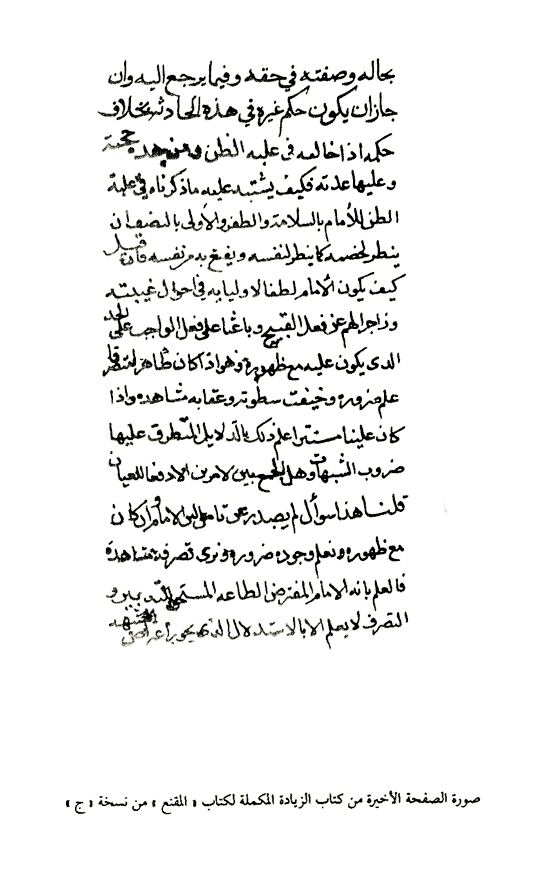 بحاله وصفته في حقه وفيما يرجع اليه وان
جاز ان يكون حكم غيره في هذه الحادثة بخلاف
حكمه اذا خالفه في غلبة الظن ومن هذه حجته
وعليها عدته فكيف يشتبه عليه ما ذكرناه في غلبة
الظن للأمام بالسلامة والظفر والأولى بالمنصف ان
ينظر لخصمه كما ينظر لنفسه ويقنع به من نفسه فان قيل
كيف يكون الامام لطفا لاوليايه في احوال غيبته
وزاجرا لهم عن فعل القبيح وباعثا على فعل الواجب على الحد
الذى يكون عليه مع ظهوره وهو اذا كان ظاهرا متصرفا
علم ضرورة وخيفت سطوته وعقابه مشاهدة واذا
كان علينا مستترا علم ذلك بالدلايل المتطرق عليها
ضروب الشبهات وهل الجمع بين الامرين الا دفعا للعيان
قلنا هذا سوأل لم يصدر عن تامل لان الامام وان كان
مع ظهوره ونعلم وجوده ضرورة ونرى تصرفه مشاهدة
فالعلم بانه الامام المفترض الطاعه المستحق للتدبير و
التصرف لا يعلم الا بالاستدلال الذى يجوز اعتراض الشبهه
صورة الصفحة الأخيرة من كتاب الزيادة المكملة لكتاب « المقنع » من نسخة « ج »